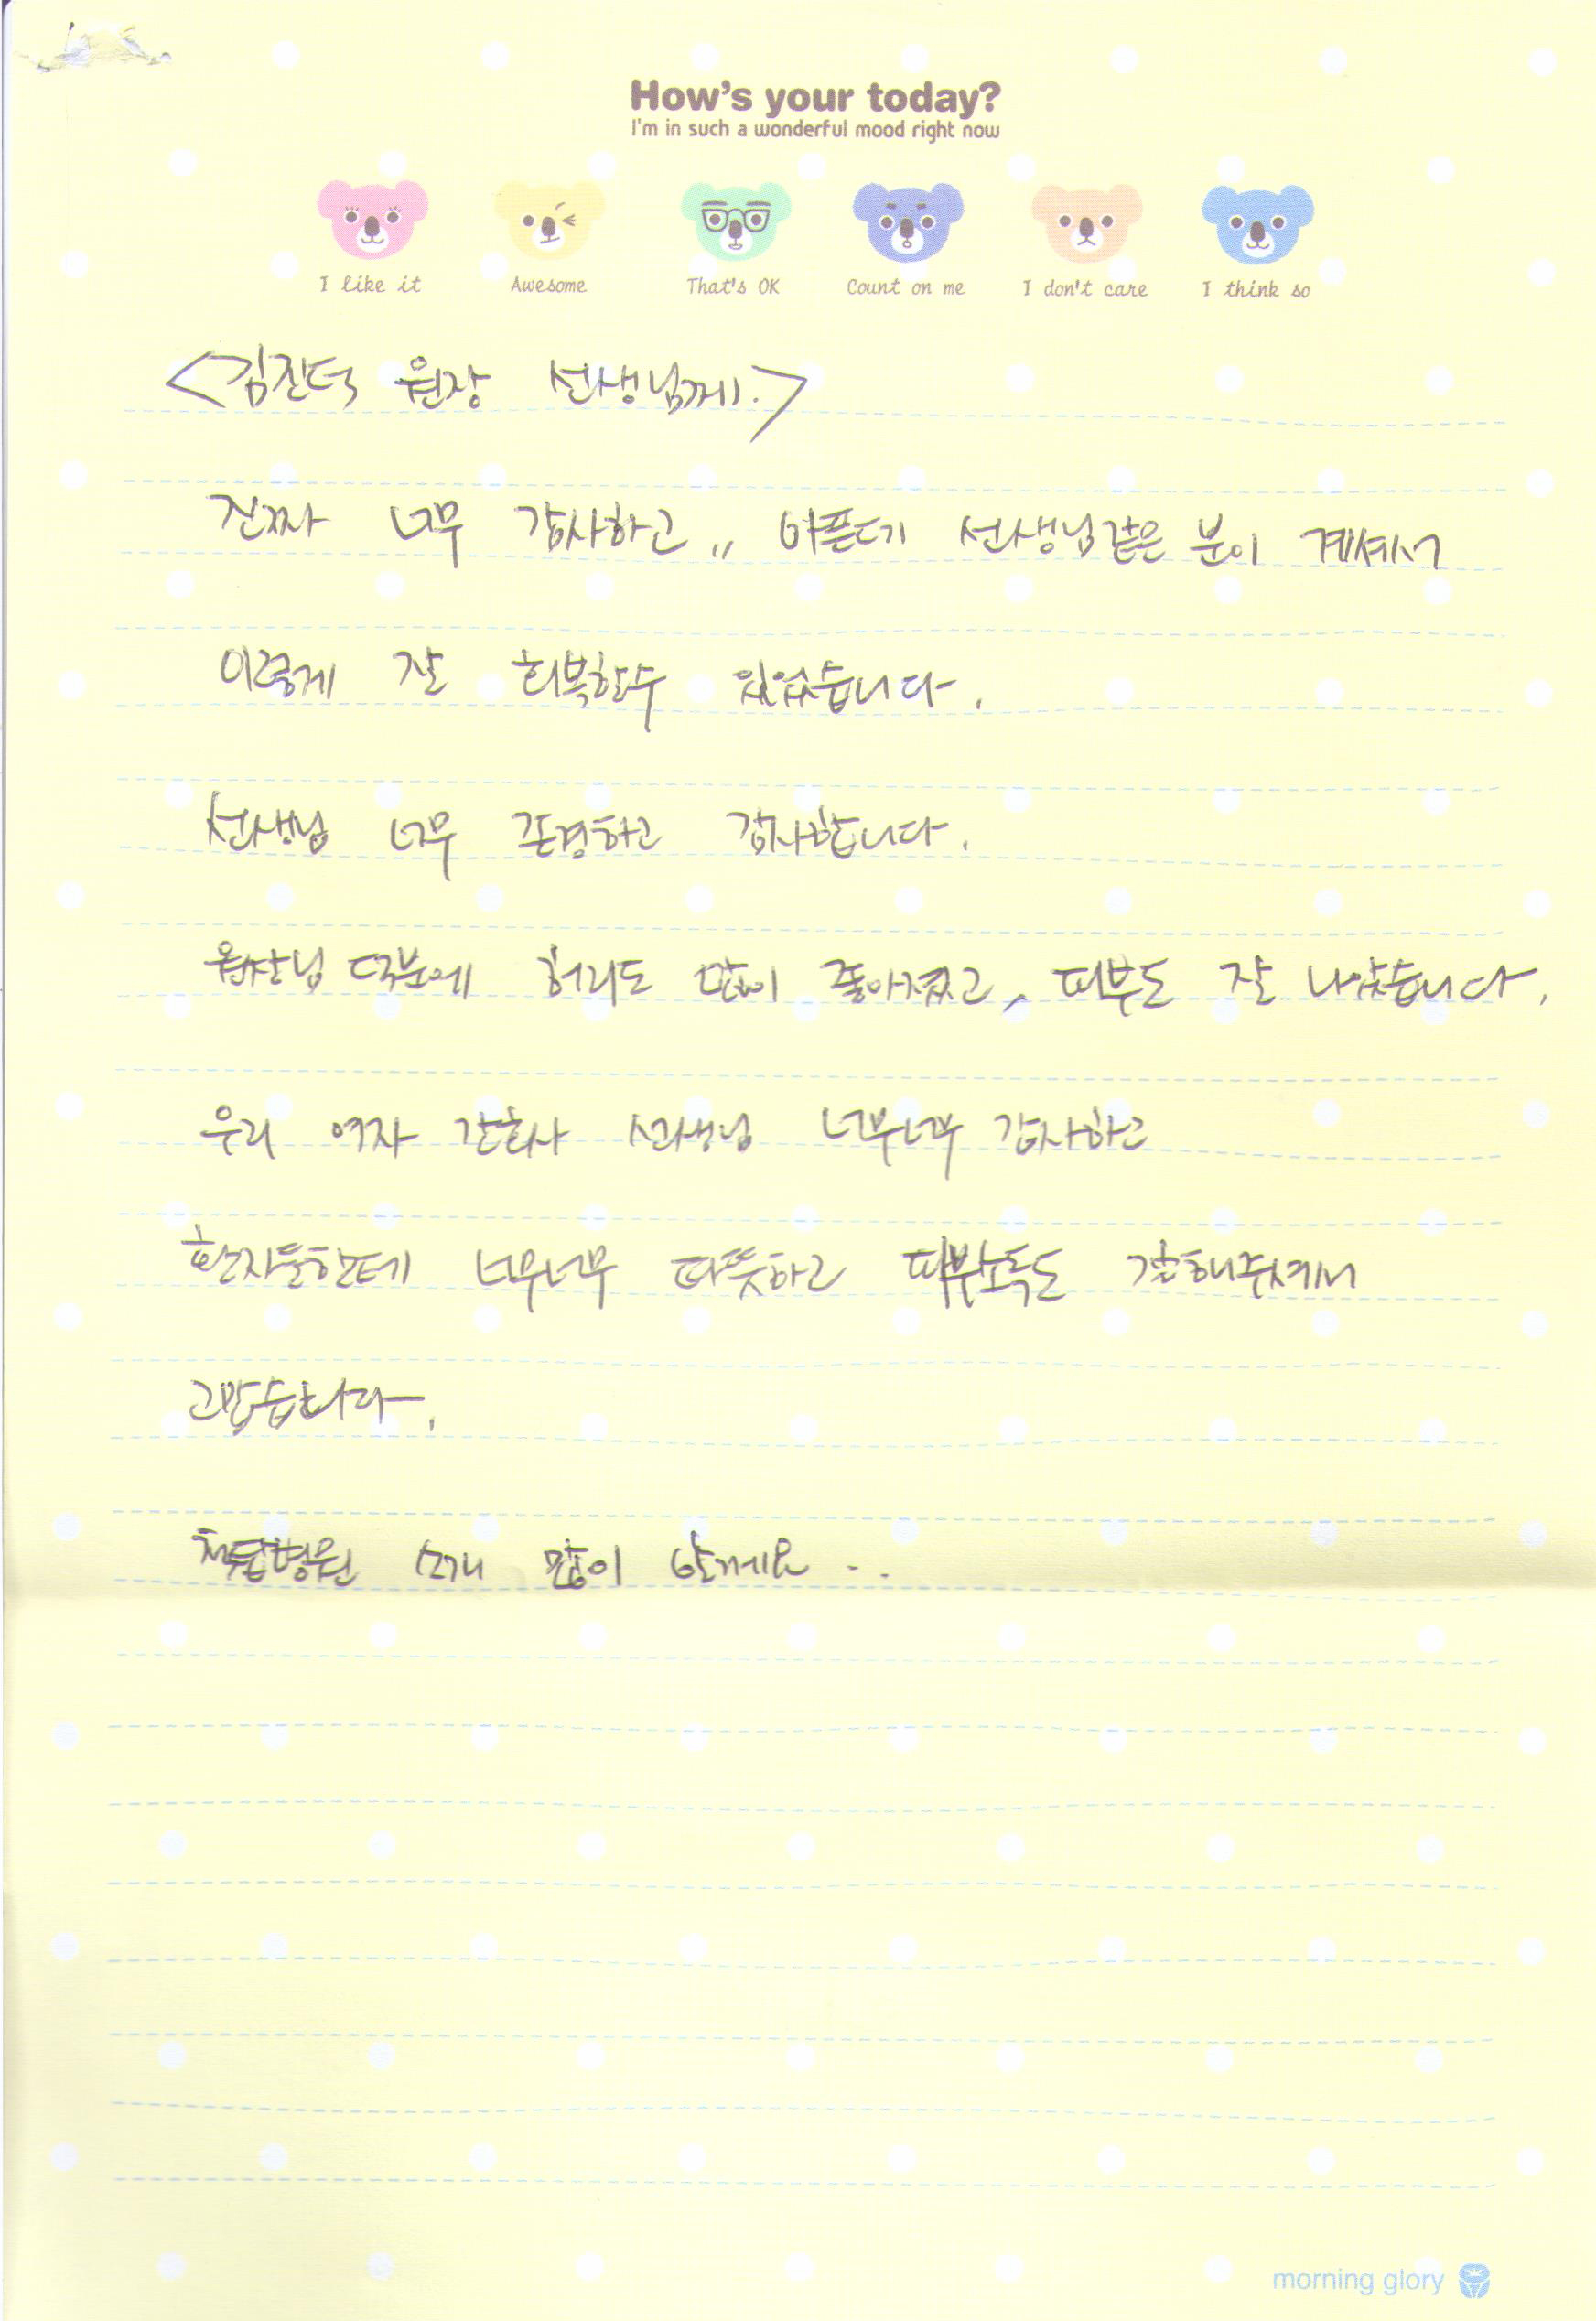 How's your today?
I'm in such a wonderful mood right now
I like it Awesome That's OK Count on me I don't care I think so
<김진덕 원장 선생님께.>
진짜 너무 감사하고,, 아픈데 선생님같은 분이 계셔서
이렇게 잘 회복할수 있었습니다.
선생님 너무 존경하고 감사합니다.
원장님 덕분에 허리도 많이 좋아졌고, 피부도 잘 나았습니다.
우리 여자 간호사 선생님 너무너무 감사하고
환자들한테 너무너무 따뜻하고 피부소독도 잘해주셔서
고맙습니다.
병원 소개 많이 할게요..
morning glory